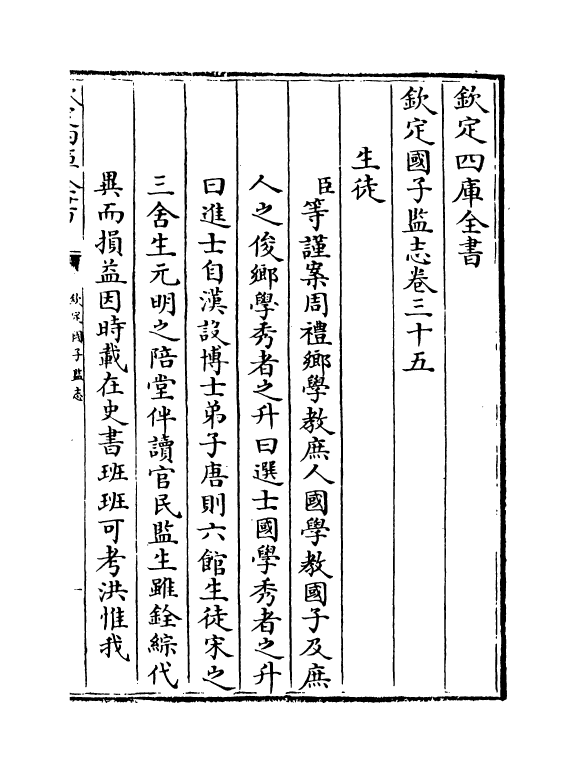 欽定四庫全書
欽定國子監志卷三十五
生徒
臣等謹案周禮鄉學教庶人國學教國子及庶
人之俊鄉學秀者之升曰選士國學秀者之升
曰進士自漢設博士弟子唐則六館生徒宋之
三舍生元明之陪堂伴讀官民監生雖銓綜代
異而損益因時載在史書班班可考洪惟我
欽定國子監志
一